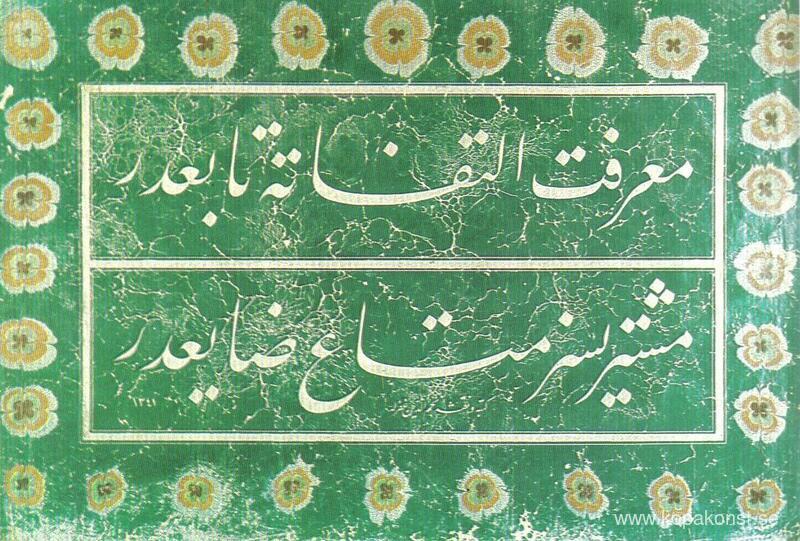 معرفت التفاته تابعدر
مشتریسز متاع ضایعدر
www.kopakonst.se